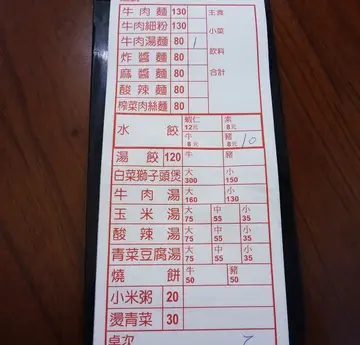 牛肉麵 130 主食
牛肉細粉 130 小菜
牛肉湯麵 80 1
炸醬麵 80 飲料
麻醬麵 80 合計
酸辣麵 80
榨菜肉絲麵 80
水餃 蝦仁 12元 素 8元
牛 8元 豬 8元 10
湯餃 120 牛 豬
白菜獅子頭煲 大 300 小 150
牛肉湯 大 160 小 130
玉米湯 大 75 中 55 小 35
酸辣湯 大 75 中 55 小 35
青菜豆腐湯 大 75 中 55 小 35
燒餅 牛 50 豬 50
小米粥 20
燙青菜 30
桌次 7